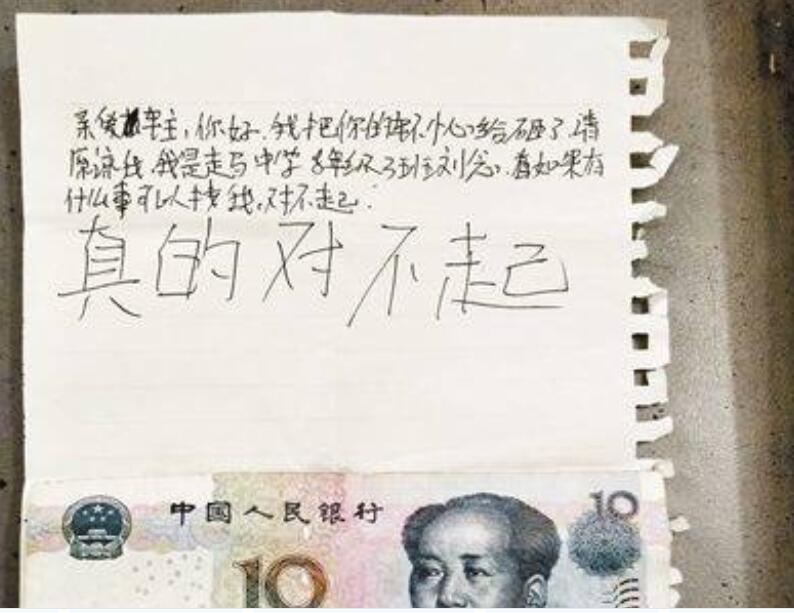 亲爱车主，你好，我把你的车不小心给砸了，请
原谅我，我是走马中学8年级3班刘念，看如果有
什么事可以找我，对不起。
真的对不起
中国人民银行
10
10